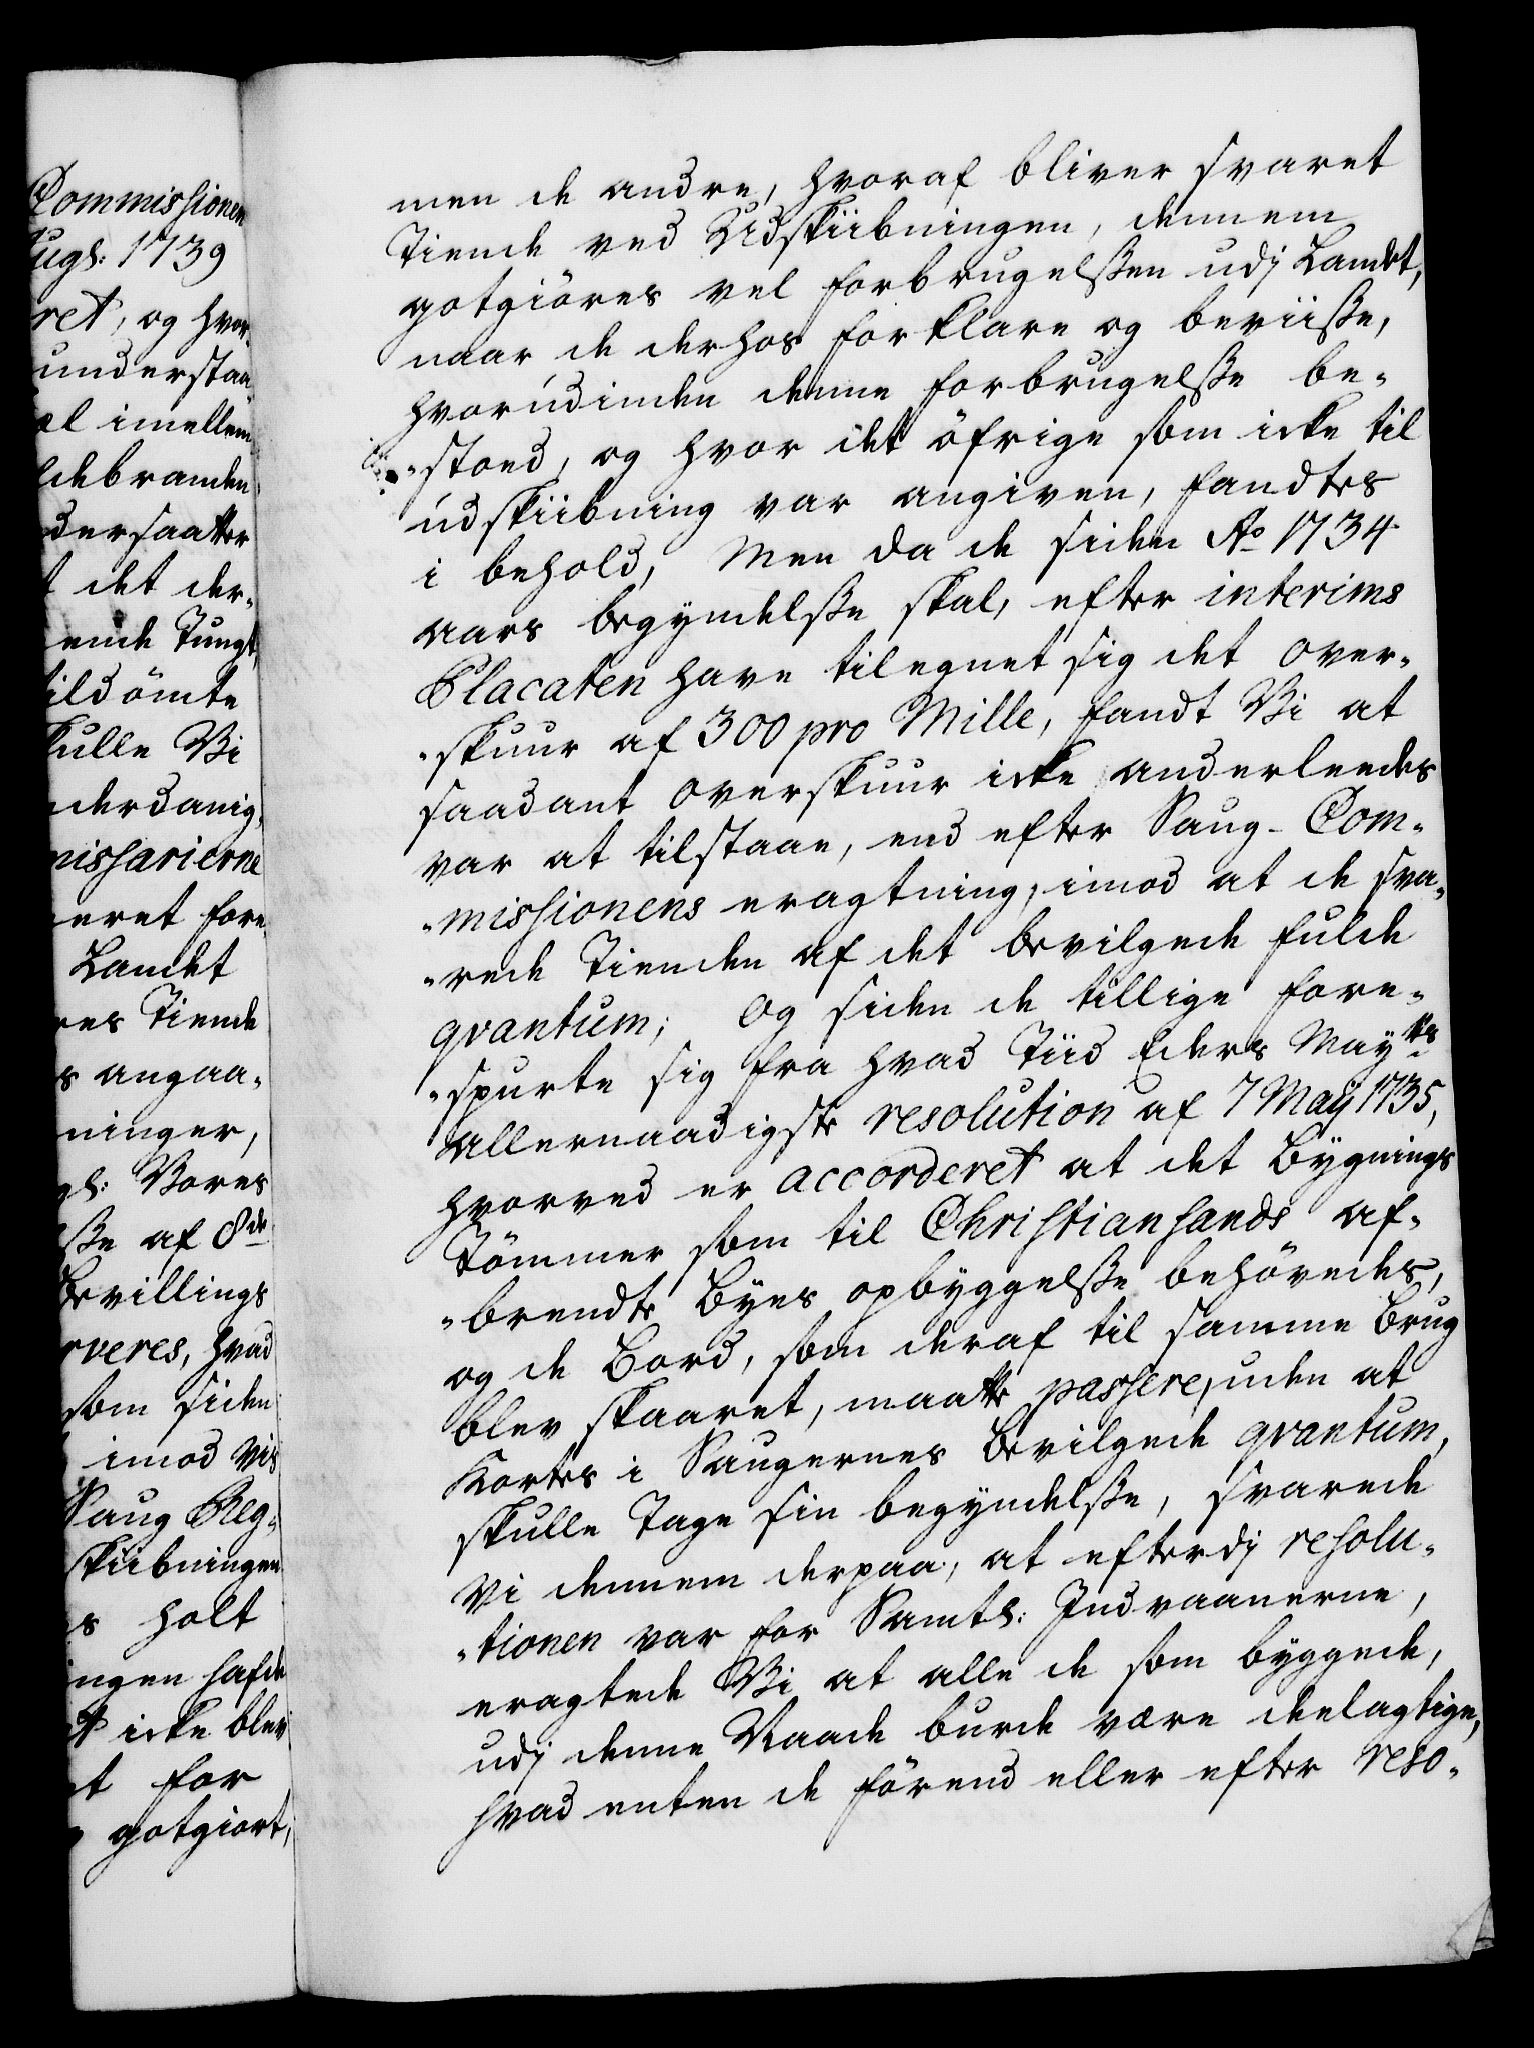 Commissionen
Augs: 1739
ret, og hvor
understaa
el imellem
debranden
dersaatter
t det der-
ende Tungt,
tildömte
kulle Vi
derdanig,
missarierne
eret fore
Landet
res Tiende
s angaa-
ninger,
gl: Vores
ße af 8de
Bevillings
rveres, hvad
som siden
imod vis
Saug Reg-
skiibningen
s holt
ingen hafde
t icke blev
t for
gotgiort,
men de andre, hvoraf bliver svaret
Tiende ved Udskiibningen, dennem
gotgiöres vel forbrugelßen udj Landet,
naar de derhos forklare og beviiße,
hvorudinden denne forbrugelße be-
-stoed, og hvor det öfrige som icke til
udskiibning var angiven, fandtes
i behold, Men da de siden Ao 1734
aars begyndelße skal, efter interims
Placaten have tilegnet sig det over-
-skuur af 300 pro Mille, fandt Vi at
saadant overskuur icke anderleedes
var at tilstaae, end efter Saug-Com-
-missionens eragtning, imod at de sva-
-rede Tienden af det bevilgede fulde
qvantum; Og siden de tillige fore-
-spurte sig fra hvad Tiid Eders Mayts
allernaadigste resolution af 7 Maÿ 1735,
hvorved er accorderet at det Bygnings
Tömmer som til Christiansands af-
-brendte Byes opbyggelße behövedes,
og de Bord, som deraf til samme Brug
blev skaaret, maatte passere, uden at
Kortes i Saugernes bevilgede qvantum,
skulle Tage sin begyndelße, svarede
Vi dennem derpaa, at efterdj resolu-
-tionen var for Samtl: Indvaanerne,
eragtede Vi at alle de som byggede,
udj denne Naade burde være deelagtige,
hvad enten de förend eller efter reso-